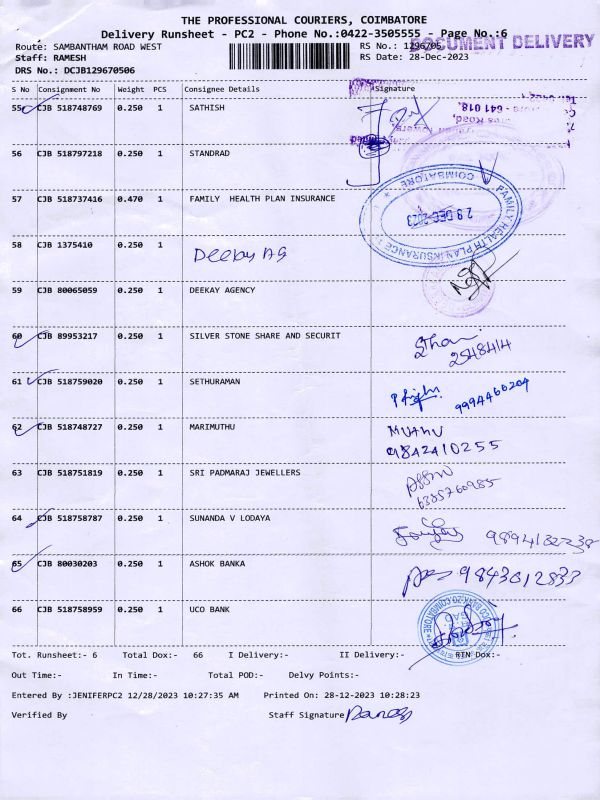 THE PROFESSIONAL COURIERS, COIMBATORE
Delivery Runsheet - PC2 - Phone No.:0422-3505555 - Page No.:6
DOCUMENT DELIVERY
Route: SAMBANTHAM ROAD WEST RS No.: 1296705
Staff: RAMESH RS Date: 28-Dec-2023
DRS No.: DCJB129670506
S No Consignment No Weight PCS Consignee Details Signature
55 CJB 518748769 0.250 1 SATHISH
- 641 018.
56 CJB 518797218 0.250 1 STANDRAD
57 CJB 518737416 0.470 1 FAMILY HEALTH PLAN INSURANCE
FAMILY HEALTH PLAN INSURANCE COIMBATORE
29 DEC 2023
58 CJB 1375410 0.250 1 Deekay AG
59 CJB 80065059 0.250 1 DEEKAY AGENCY
60 CJB 89953217 0.250 1 SILVER STONE SHARE AND SECURIT
2548414
61 CJB 518759020 0.250 1 SETHURAMAN
9994466204
62 CJB 518748727 0.250 1 MARIMUTHU MUTHU
9842410255
63 CJB 518751819 0.250 1 SRI PADMARAJ JEWELLERS
6385760985
64 CJB 518758787 0.250 1 SUNANDA V LODAYA
65 CJB 80030203 0.250 1 ASHOK BANKA 9843012833
66 CJB 518758959 0.250 1 UCO BANK
Tot. Runsheet:- 6 Total Dox:- 66 I Delivery:- II Delivery:- RTN Dox:-
Out Time:- In Time:- Total POD:- Delvy Points:-
Entered By :JENIFERPC2 12/28/2023 10:27:35 AM Printed On: 28-12-2023 10:28:23
Verified By Staff Signature Ramesh